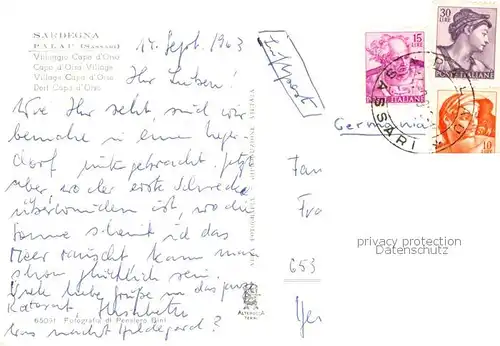 SARDEGNA
PALAU (Sassari)
Villaggio Capo d'Orso
Cape d'Orso Village
Village Capo d'Orso
Dorf Capo d'Orso
14. Sept. 1963
Luftpost
Ihr Lieben!
Wie Ihr seht, sind wir
beinahe in einem
dorf untergebracht. Jetzt
aber, wo der erste Schreck
überwunden ist, wo die
Sonne scheint und das
Meer rauscht kann man
schon glücklich sein.
Viele liebe Grüße an das ganze
Was macht Hildegard?
65091 Fotografia di Pensiero Bini
ALTEROCCA
TERNI
15
LIRE
POSTE ITALIANE
30
LIRE
POSTE ITALIANE
10
LIRE
PALAU
SASSARI
Germania
Fam
Fra
653
Ger
privacy protection
Datenschutz